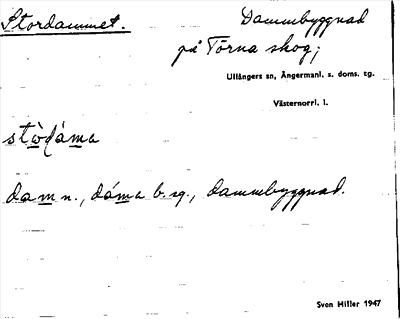 Stordammet. Dammbyggnad
på Törna skog;
Ullångers sn, Ångermanl. s. doms. tg.
Västernorrl. l.
stò̀dáma
dam n., dáma b. sg., dammbyggnad.
Sven Hiller 1947